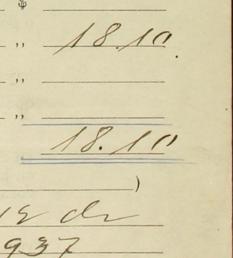 $
" 18.10
"
"
18.10
)
937